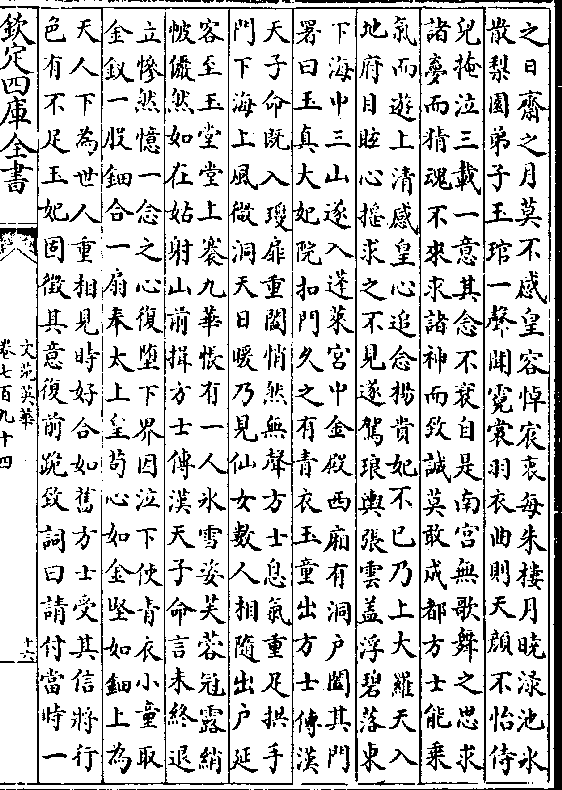 之日齋之月莫不感皇容悼宸衷每朱樓月曉渌池氷
散梨園弟子玉琯一聲聞霓裳羽衣曲則天顔不怡侍
兒掩泣三載一意其念不衰自是南宮無歌舞之思求
諸夢而猜魂不來求諸神而致誠莫敢成都方士能乗
氣而遊上清感皇心追念楊貴妃不已乃上大羅天入
地府目眩心摇求之不見遂駕琅輿張雲盖浮碧落東
下海中三山遂入蓬萊宮中金殿西廂有洞户闔其門
署曰玉真大妃院扣門久之有青衣玉童出方士傳漢
天子命既入瓊扉重闔悄然無聲方士息氣重足拱手
門下海上風微洞天日暖乃見仙女數人相隨出户延
客至玉堂堂上褰九華帳有一人氷雪姿芙蓉冠露綃
帔儼然如在姑射山前揖方士傳漢天子命言未終退
立慘然憶一念之心復墮下界因泣下使青衣小童取
金釵一股鈿合一扇奉太上皇苟心如金堅如鈿上為
天人下為世人重相見時好合如舊方士受其信將行
色有不足玉妃固徵其意復前跪致詞曰請付當時一
欽定四庫全書
文苑英華
卷七百九十四
十六